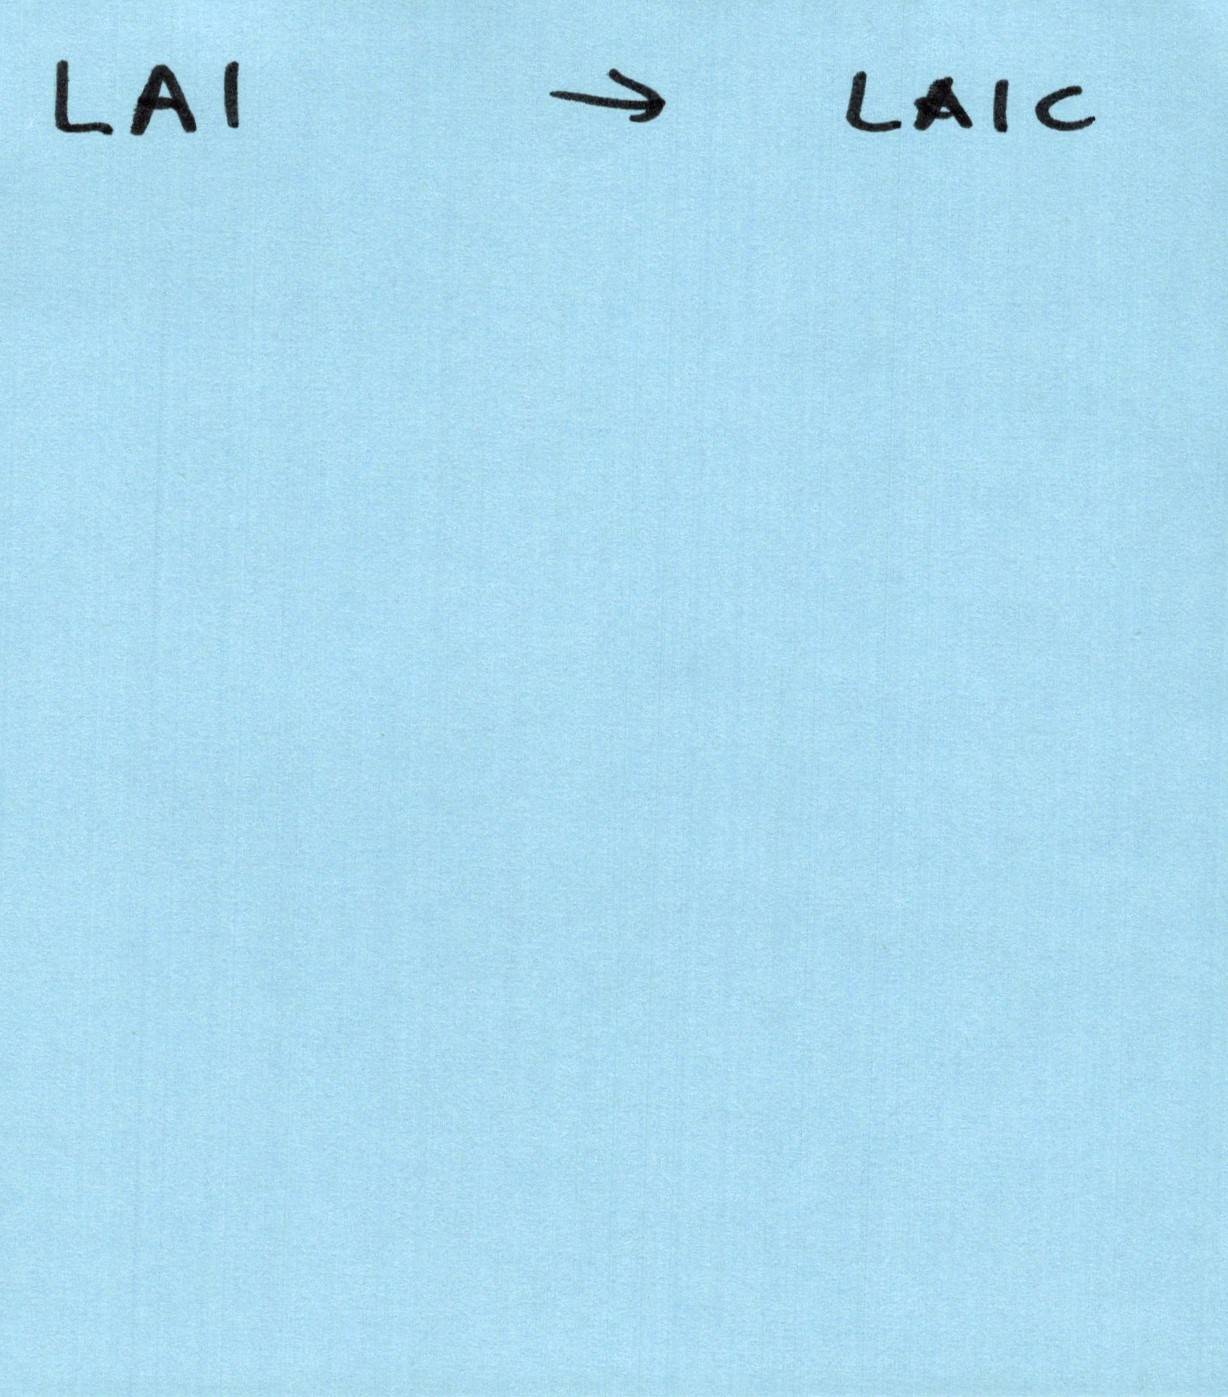 LAI → LAIC